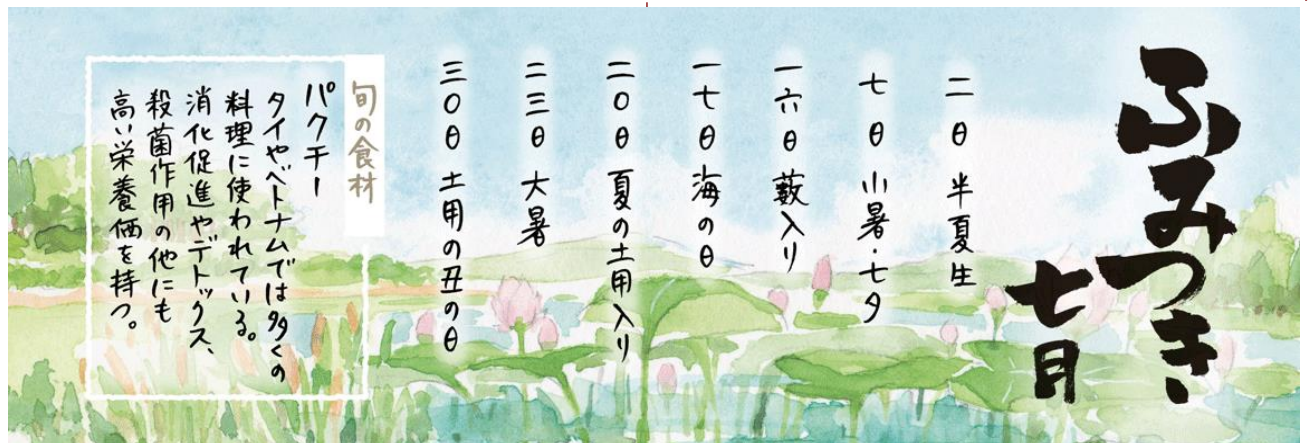 ふみつき
七月
二日 半夏生
七日 小暑・七夕
一六日 藪入り
一七日 海の日
二〇日 夏の土用入り
二三日 大暑
三〇日 土用の丑の日
旬の食材
パクチー
タイやベトナムでは多くの
料理に使われている。
消化促進やデトックス、
殺菌作用の他にも
高い栄養価を持つ。